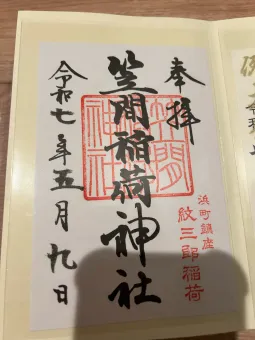 奉拝
笠間稲荷神社
浜町鎮座
紋三郎稲荷
令和七年五月九日